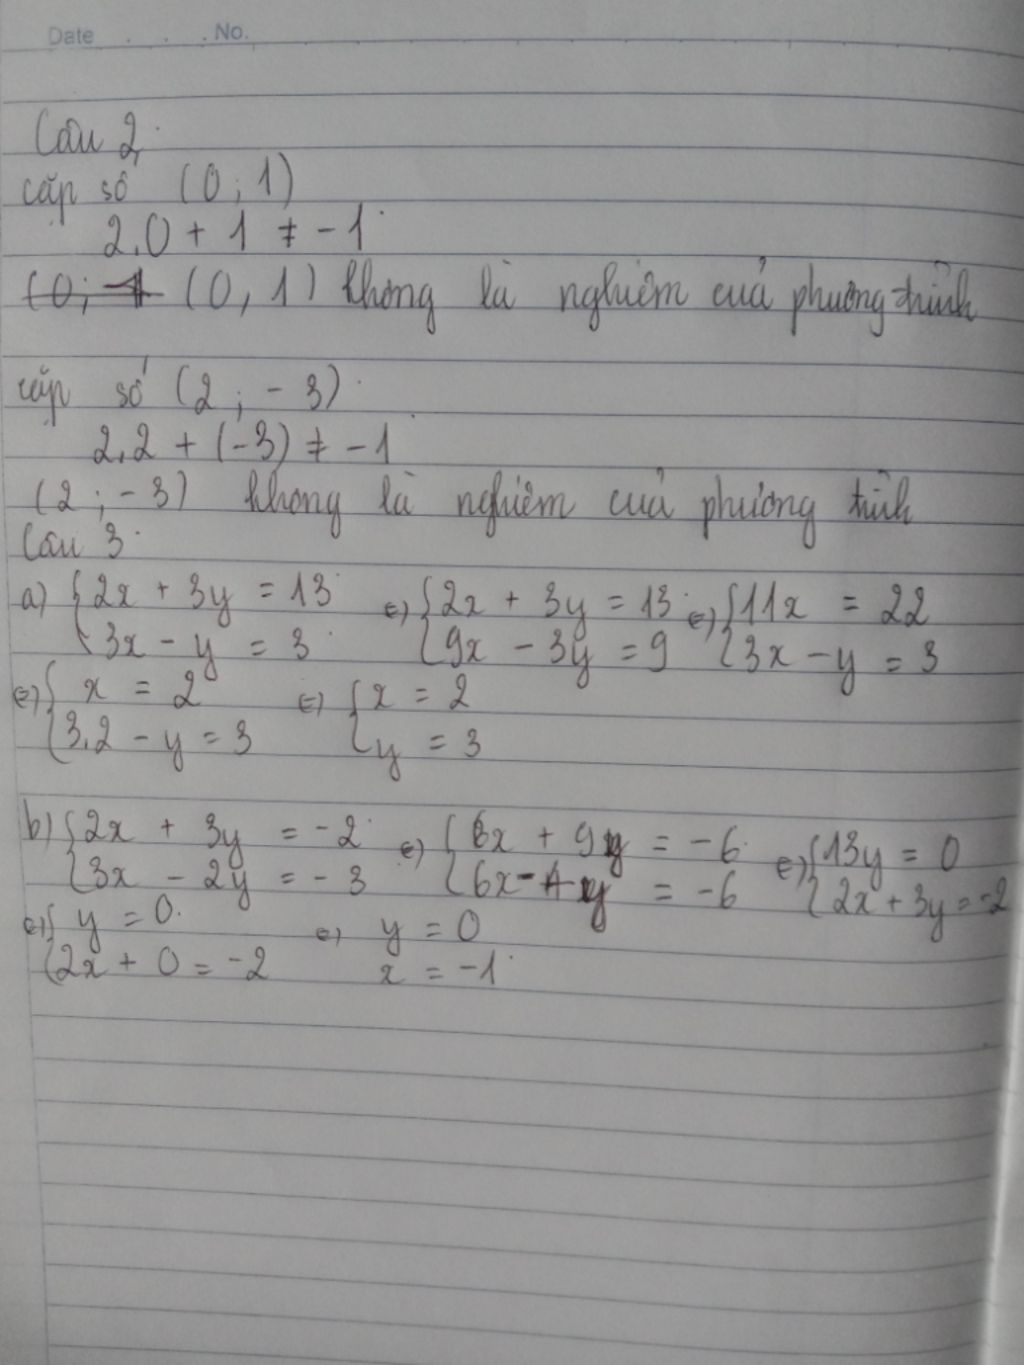 Date . . . No.
Câu 2
cặp số (0; 1)
2.0 + 1 ≠ -1
(0; 1) không là nghiệm của phương trình
cặp số (2; -3)
2.2 + (-3) ≠ -1
(2; -3) không là nghiệm của phương trình
Câu 3
a) { 2x + 3y = 13 ⇔ { 2x + 3y = 13 ⇔ { 11x = 22
3x - y = 3 9x - 3y = 9 3x - y = 3
⇔ { x = 2 ⇔ { x = 2
3.2 - y = 3 y = 3
b) { 2x + 3y = -2 ⇔ { 6x + 9y = -6 ⇔ { 13y = 0
3x - 2y = -3 6x - 4y = -6 2x + 3y = -2
⇔ { y = 0 ⇔ y = 0
2x + 0 = -2 x = -1